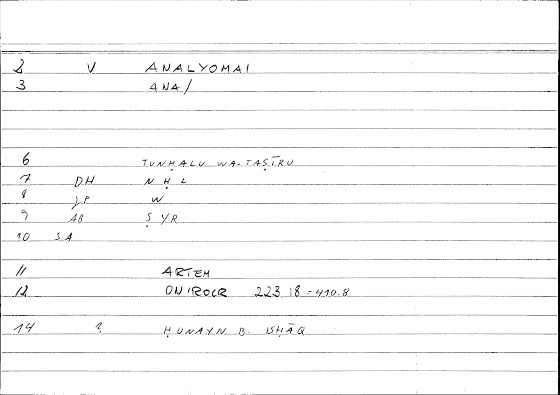 2 V ANALYOMAI
3 ANA/
6 TUNḤALU WA-TAṢĪRU
7 DH NḤL
8 JP W
9 AB ṢYR
10 SA
11 ARTEM
12 ONIROCR 223.18 = 410.8
14 ? ḤUNAYN B. ISḤĀQ